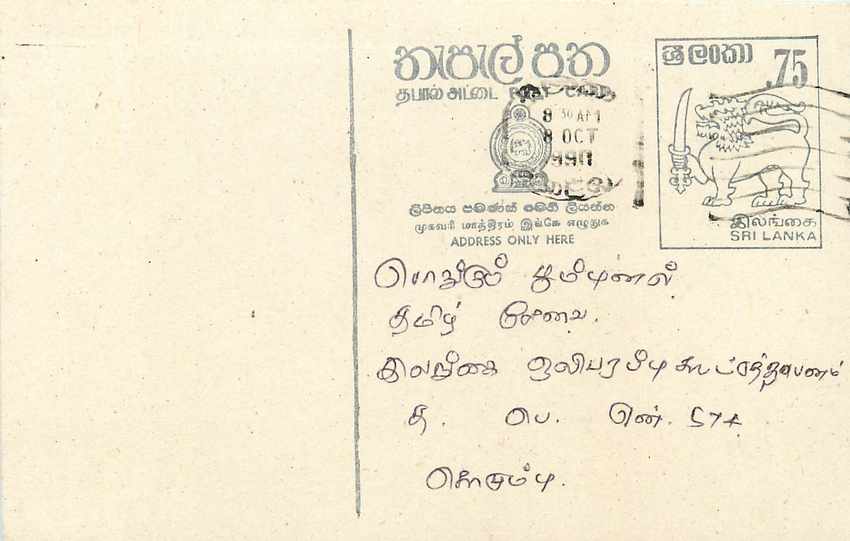 තැපැල් පත
தபால் அட்டை POST CARD
8 30 AM
8 OCT
1990
ශ්‍රී ලංකා .75
இலங்கை
SRI LANKA
ලිපිනය පමණක් මෙහි ලියන්න
முகவரி மாத்திரம் இங்கே எழுதுக
ADDRESS ONLY HERE
தமிழ் சேவை.
இலங்கை ஒலிபரப்பு கூட்டுத்தாபனம்
த. பெ. என். 574
கொழும்பு.